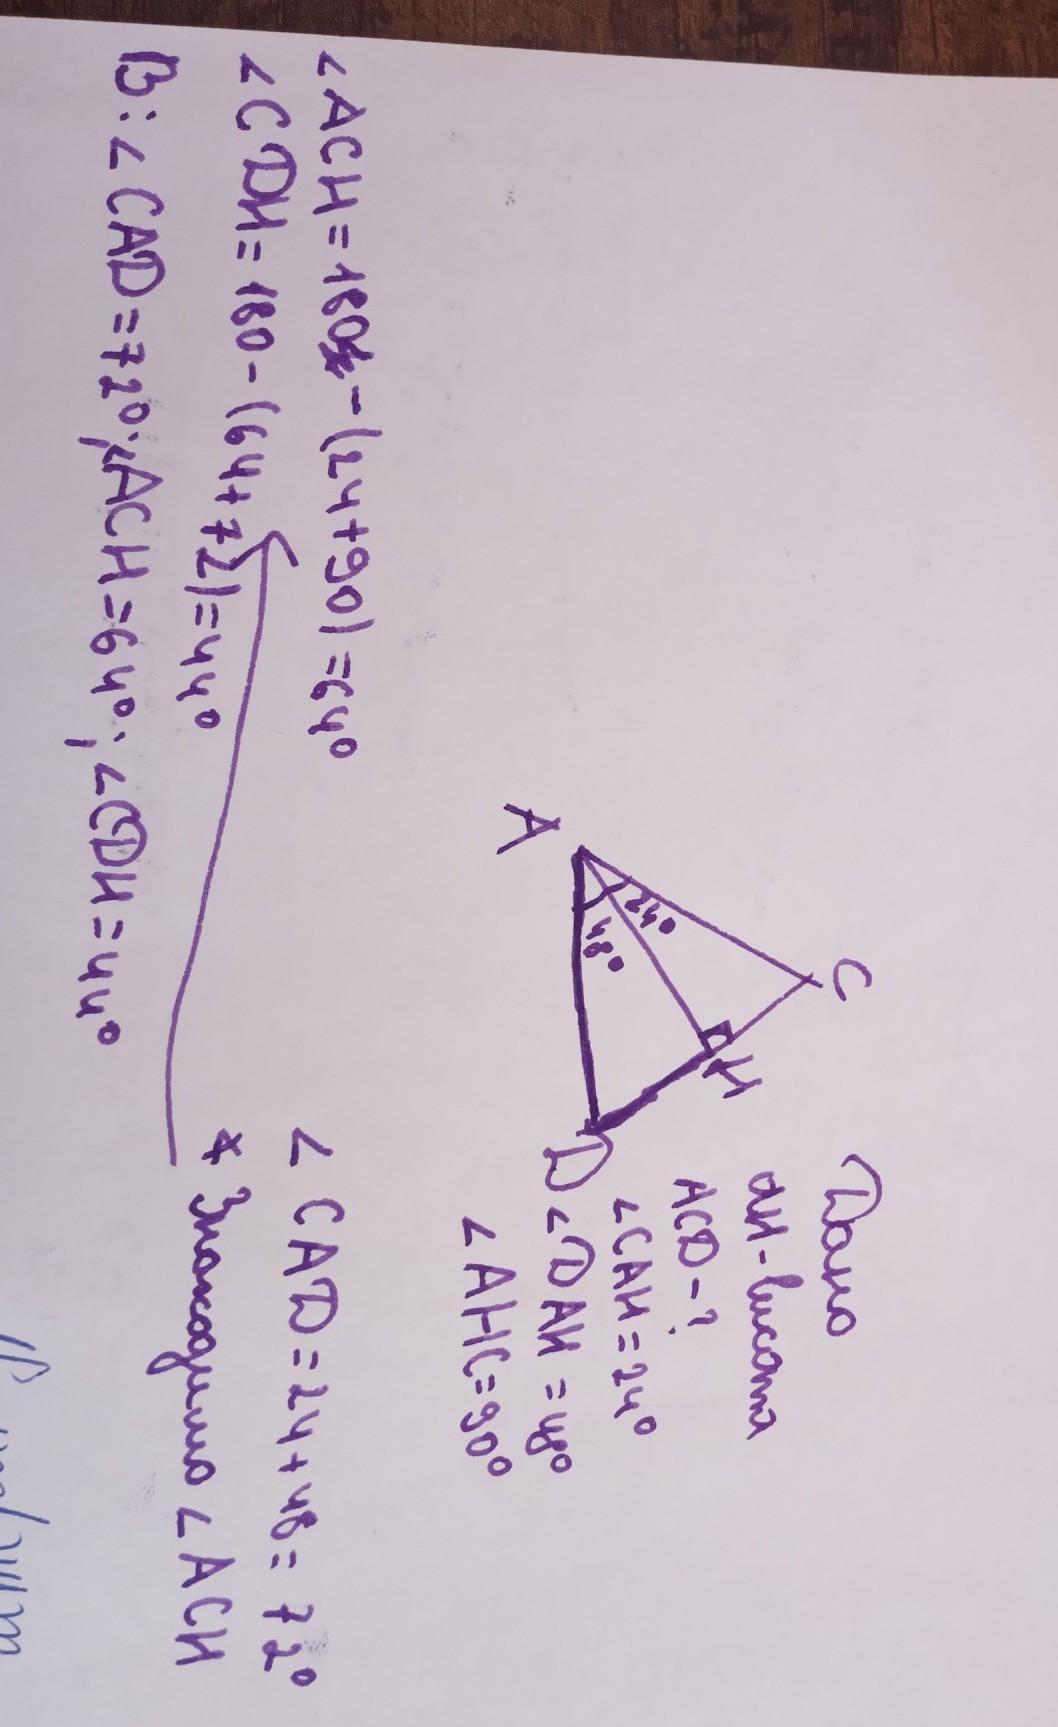 Дано
АН - висота
ACD - ?
∠CAH = 24°
∠DAH = 48°
∠AHC = 90°
C
24°
H
A
48°
D
∠CAD = 24 + 48 = 72°
* Знаходимо ∠ACH
∠ACH = 180 - (24 + 90) = 64°
∠CDH = 180 - (64 + 72) = 44°
В: ∠CAD = 72°; ∠ACH = 64°; ∠CDH = 44°